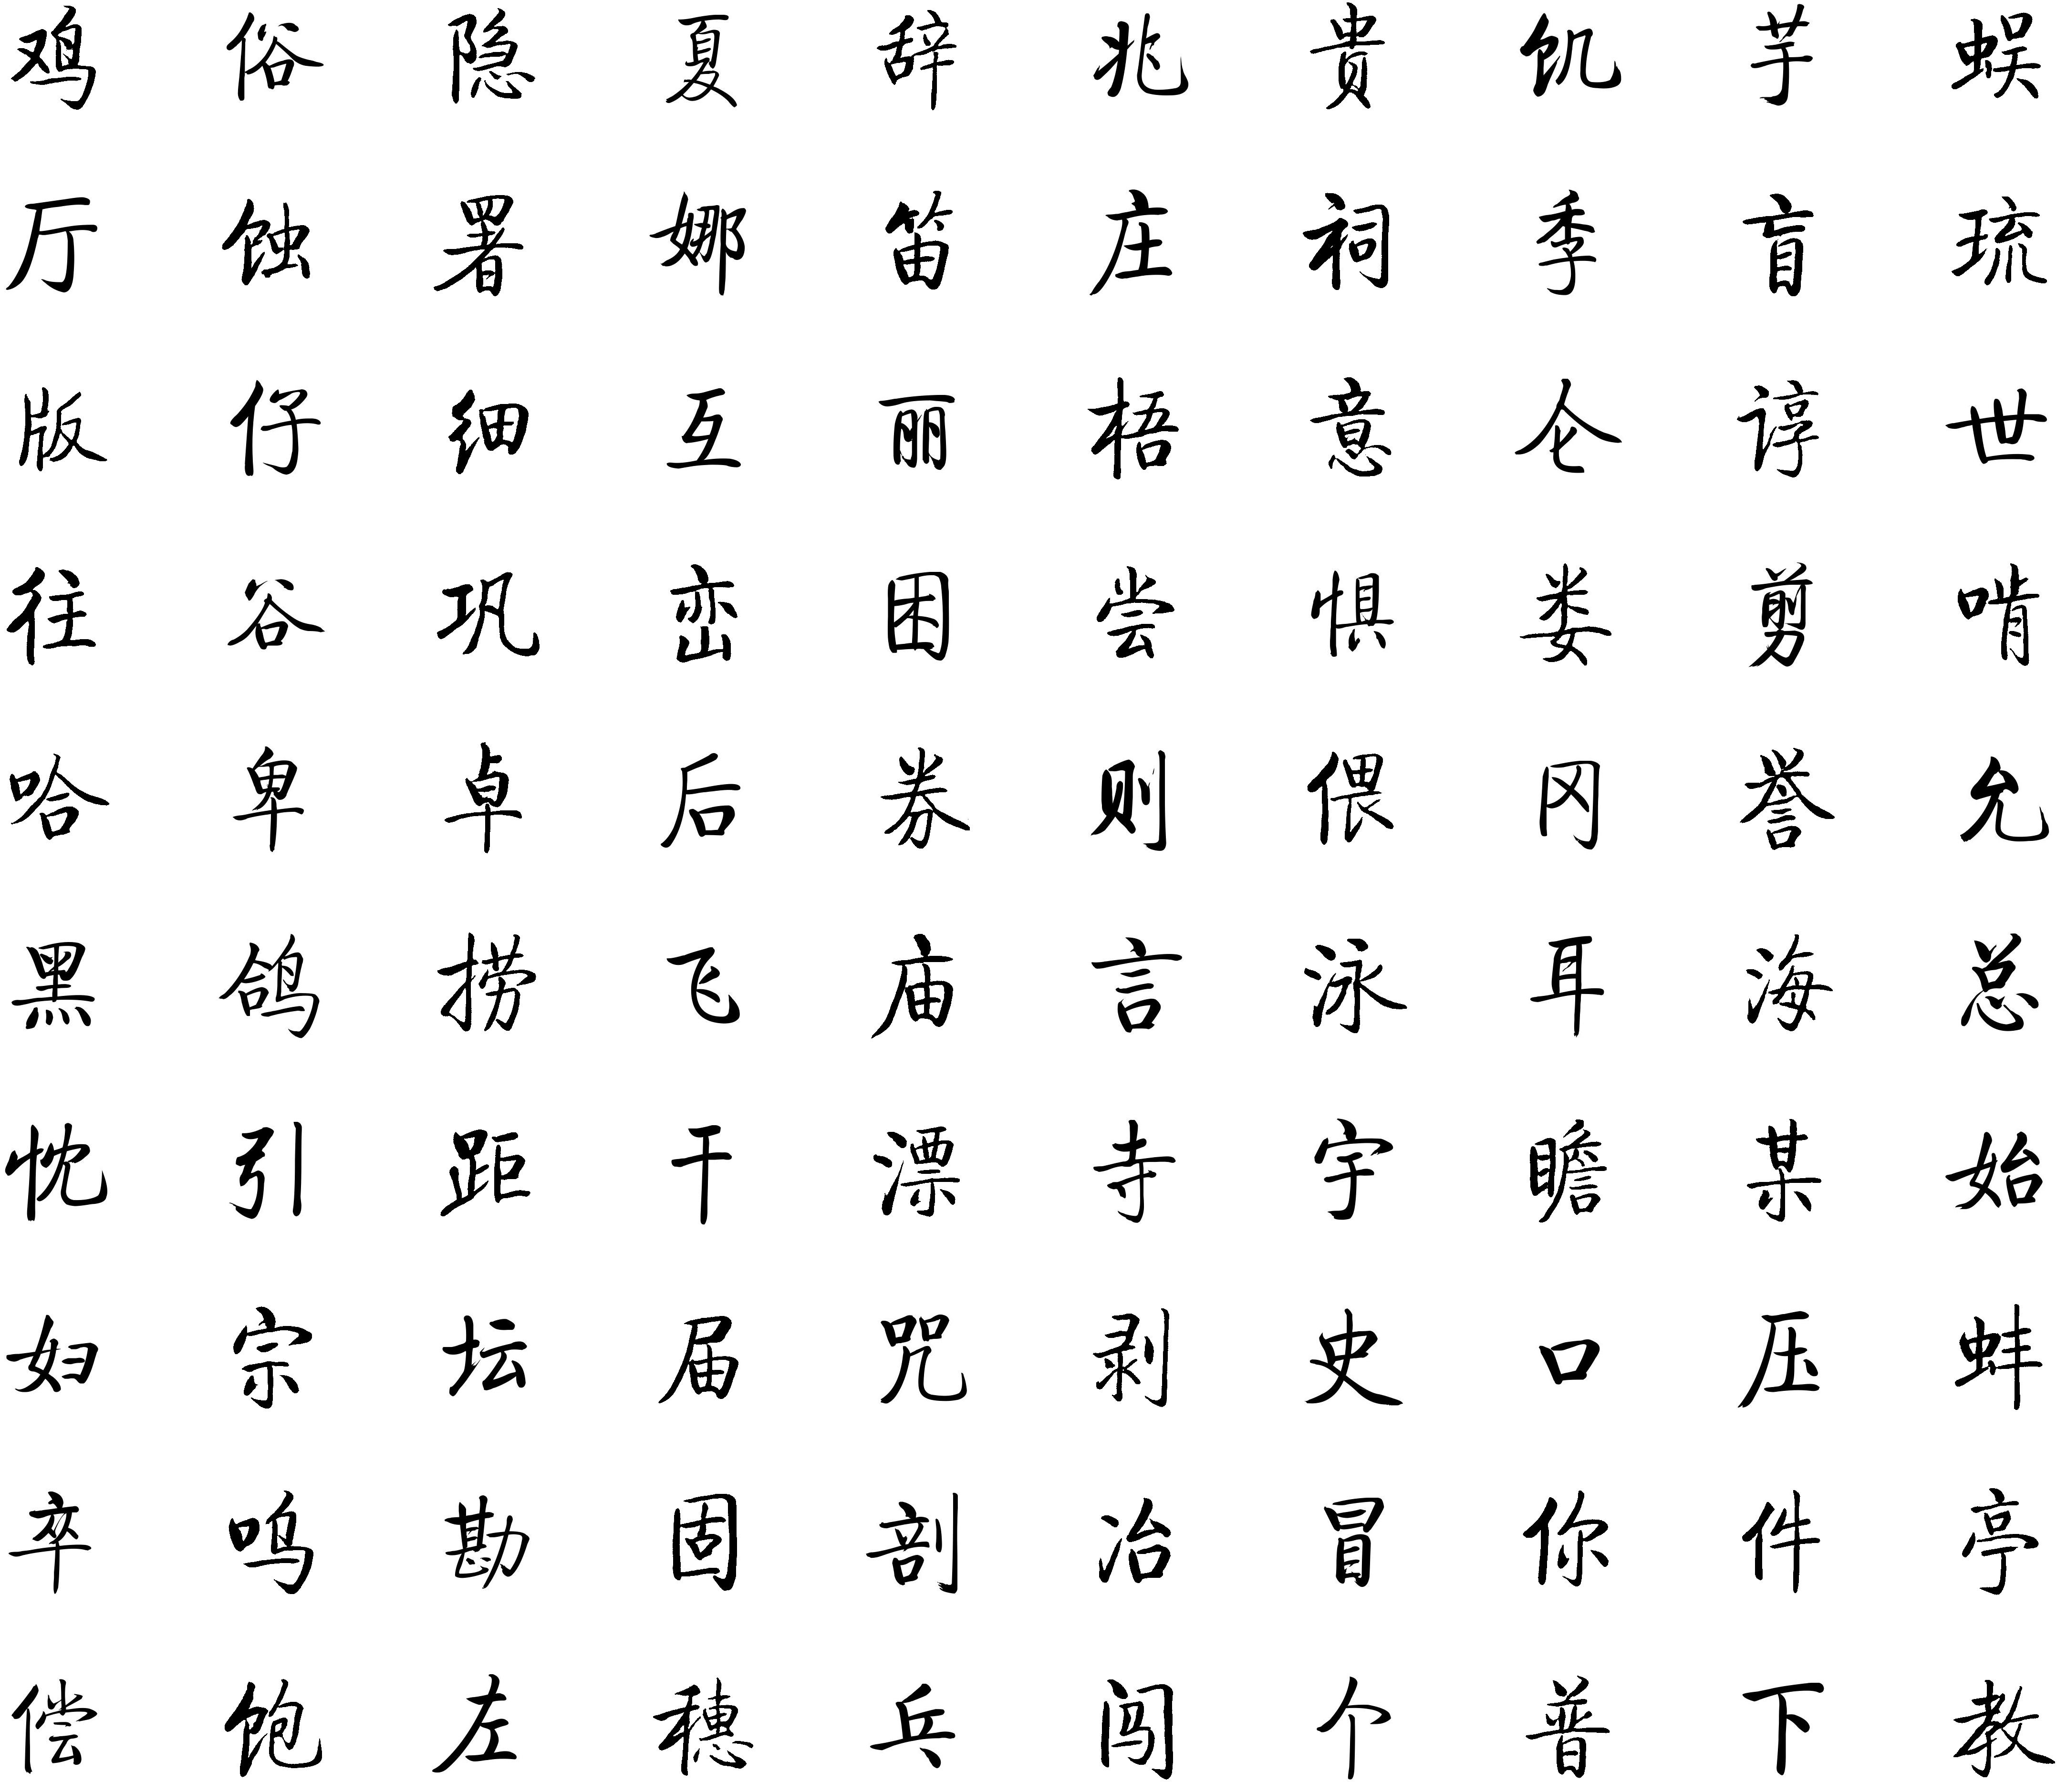 鸡 俗 隐 夏 辞 兆 贵 饥 芋 蜈
厅 蚀 署 娜 笛 庄 祠 季 盲 琉
版 仔 细 互 丽 梧 意 仑 谆 世
往 谷 巩 峦 困 尝 惧 娄 剪 啃
哈 卑 卓 后 券 则 偎 冈 誉 允
黑 鸽 捞 飞 庙 言 泳 耳 海 总
忱 引 距 干 漂 寺 宇 瞻 某 始
妇 宗 坛 届 咒 剥 史 口 压 蚌
卒 鸣 勘 固 剖 冶 冒 你 件 亭
偿 饱 左 穗 乓 闾 个 普 下 教